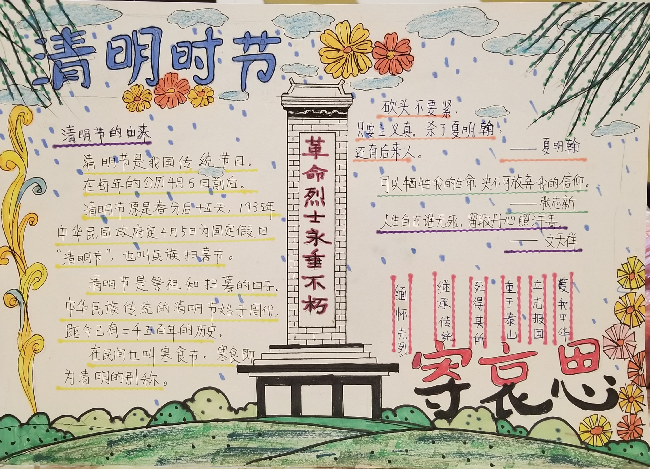 清明时节
清明节的由来
清明节是我国传统节日,
在每年的公历4月5日前后。
清明节原是春分后15天, 1935年
中华民国政府定4月5日为国定假日
"清明节", 也叫民族扫墓节。
清明节是祭祀和扫墓的日子,
中华民族传统的清明节始于周代,
距今已有二千五百年的历史。
为清明的别称。
革命烈士永垂不朽
砍头不要紧,
只要主义真, 杀了夏明翰,
还有后来人。
——夏明翰
——张志新
人生自古谁无死, 留取丹心照汗青。
——文天祥
缅怀先烈
继承传统
死得其所
重于泰山
立志报国
爱我中华
寄哀思